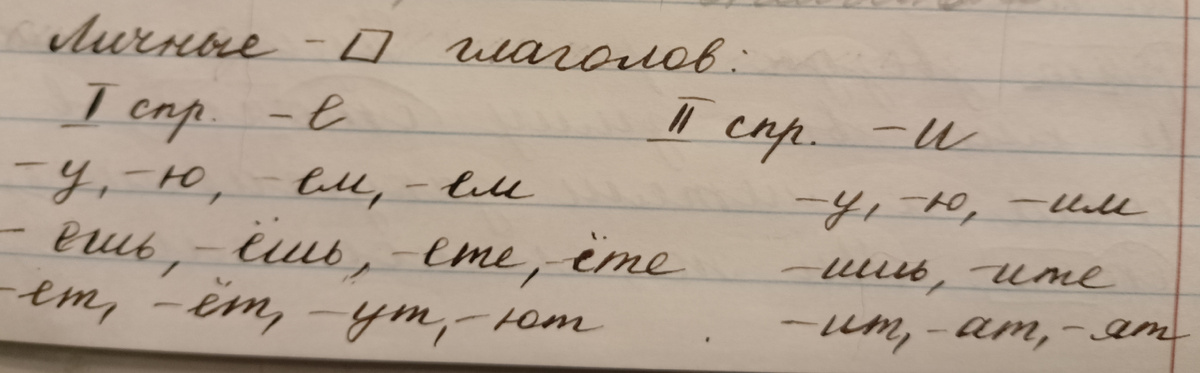 Личные - □ глаголов:
I спр. -е II спр. -и
-у, -ю, -ем, -ем -у, -ю, -им
-ешь, -ёшь, -ете, -ёте -ишь, -ите
-ет, -ёт, -ут, -ют -ит, -ат, -ят